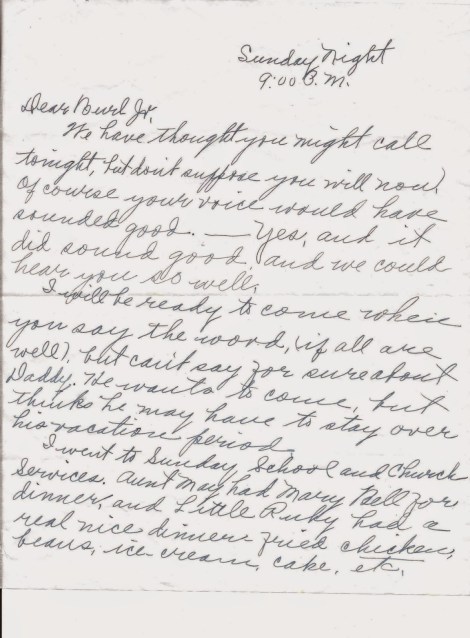 Sunday Night
9:00 P.M.
Dear Burl Jr.
We have thought you might call
tonight, but don't suppose you will now.
Of course your voice would have
sounded good. — Yes, and it
did sound good, and we could
hear you so well.
I will be ready to come when
you say the word, (if all are
well), but can't say for sure about
Daddy. He wants to come, but
thinks he may have to stay over
his vacation period.
I went to Sunday School and Church
Services. Aunt May had Mary Nell for
dinner, and Little Ruby had a
real nice dinner fried chicken,
beans, ice cream, cake, etc.